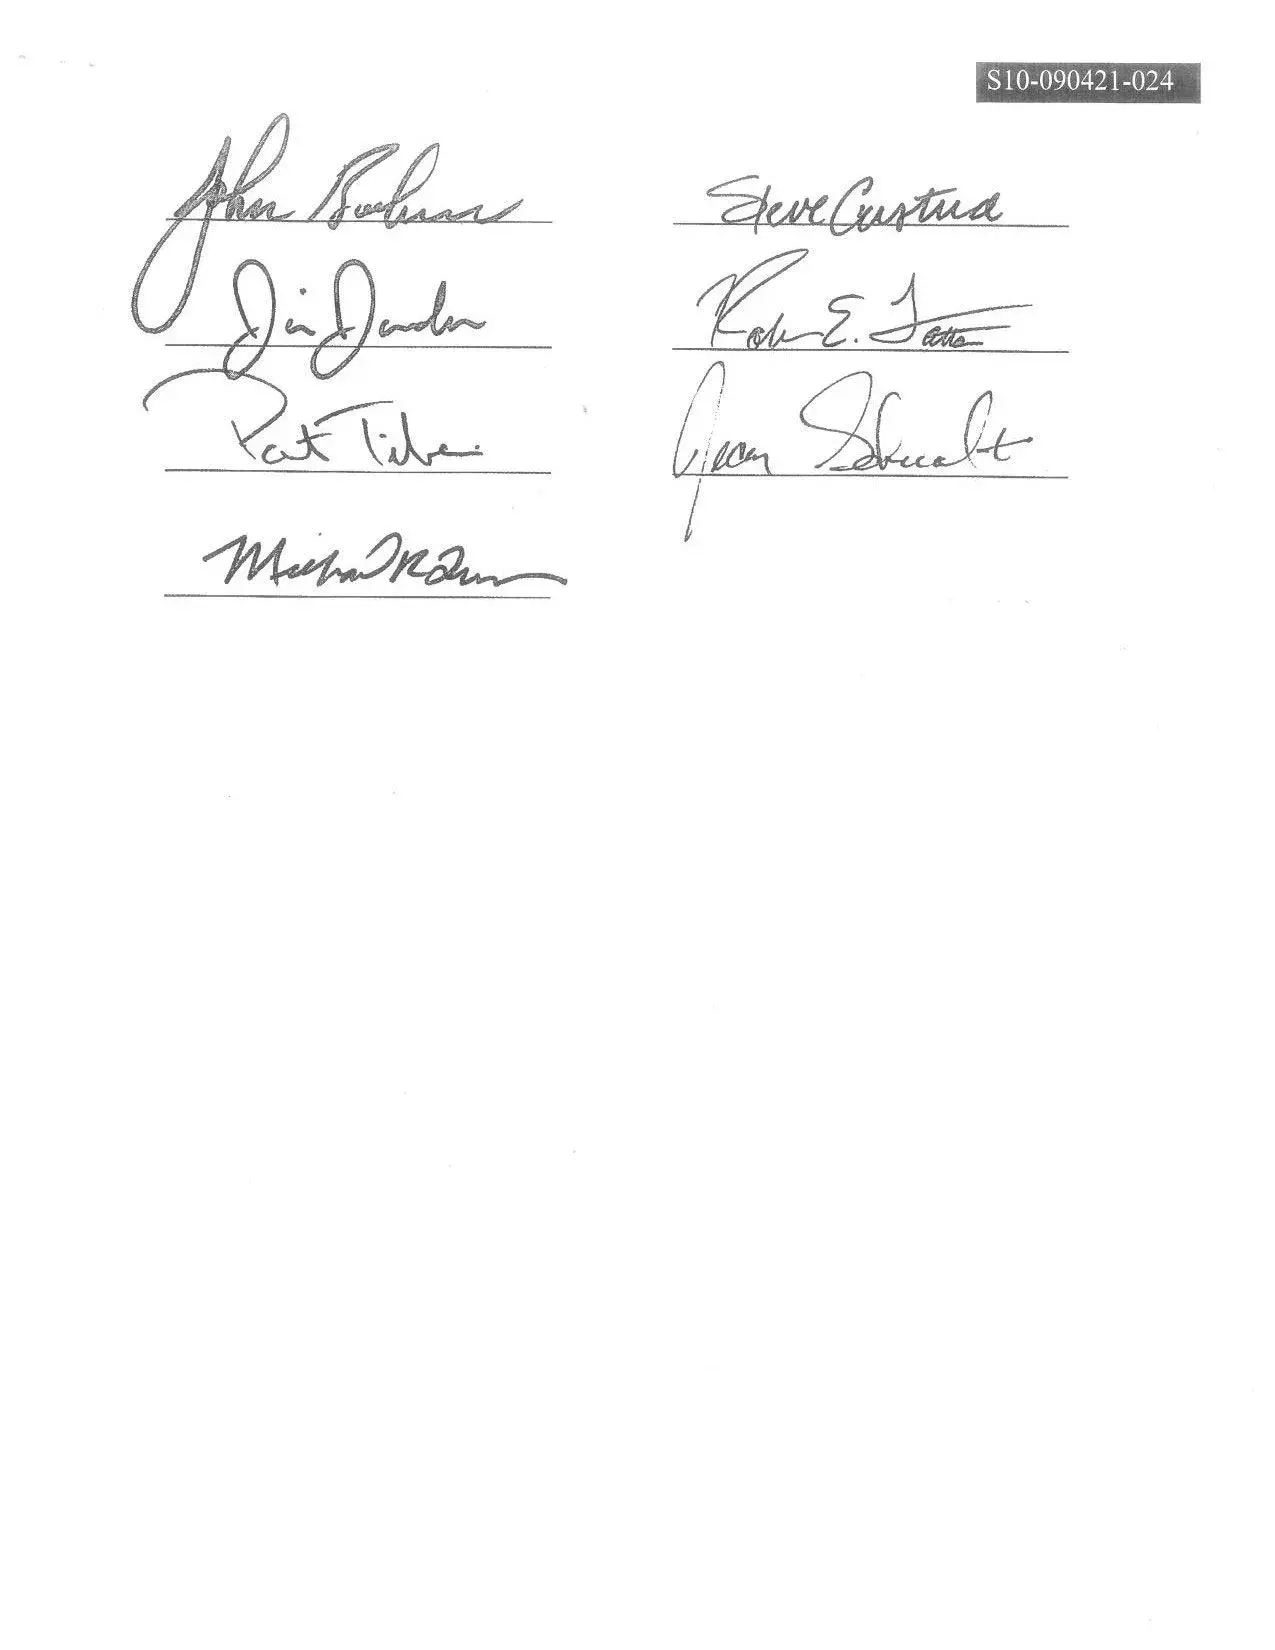 S10-090421-024
John Boehner
Steve Austria
Jim Jordan
Robert E. Latta
Pat Tiberi
Jean Schmidt
Michael R. Turner